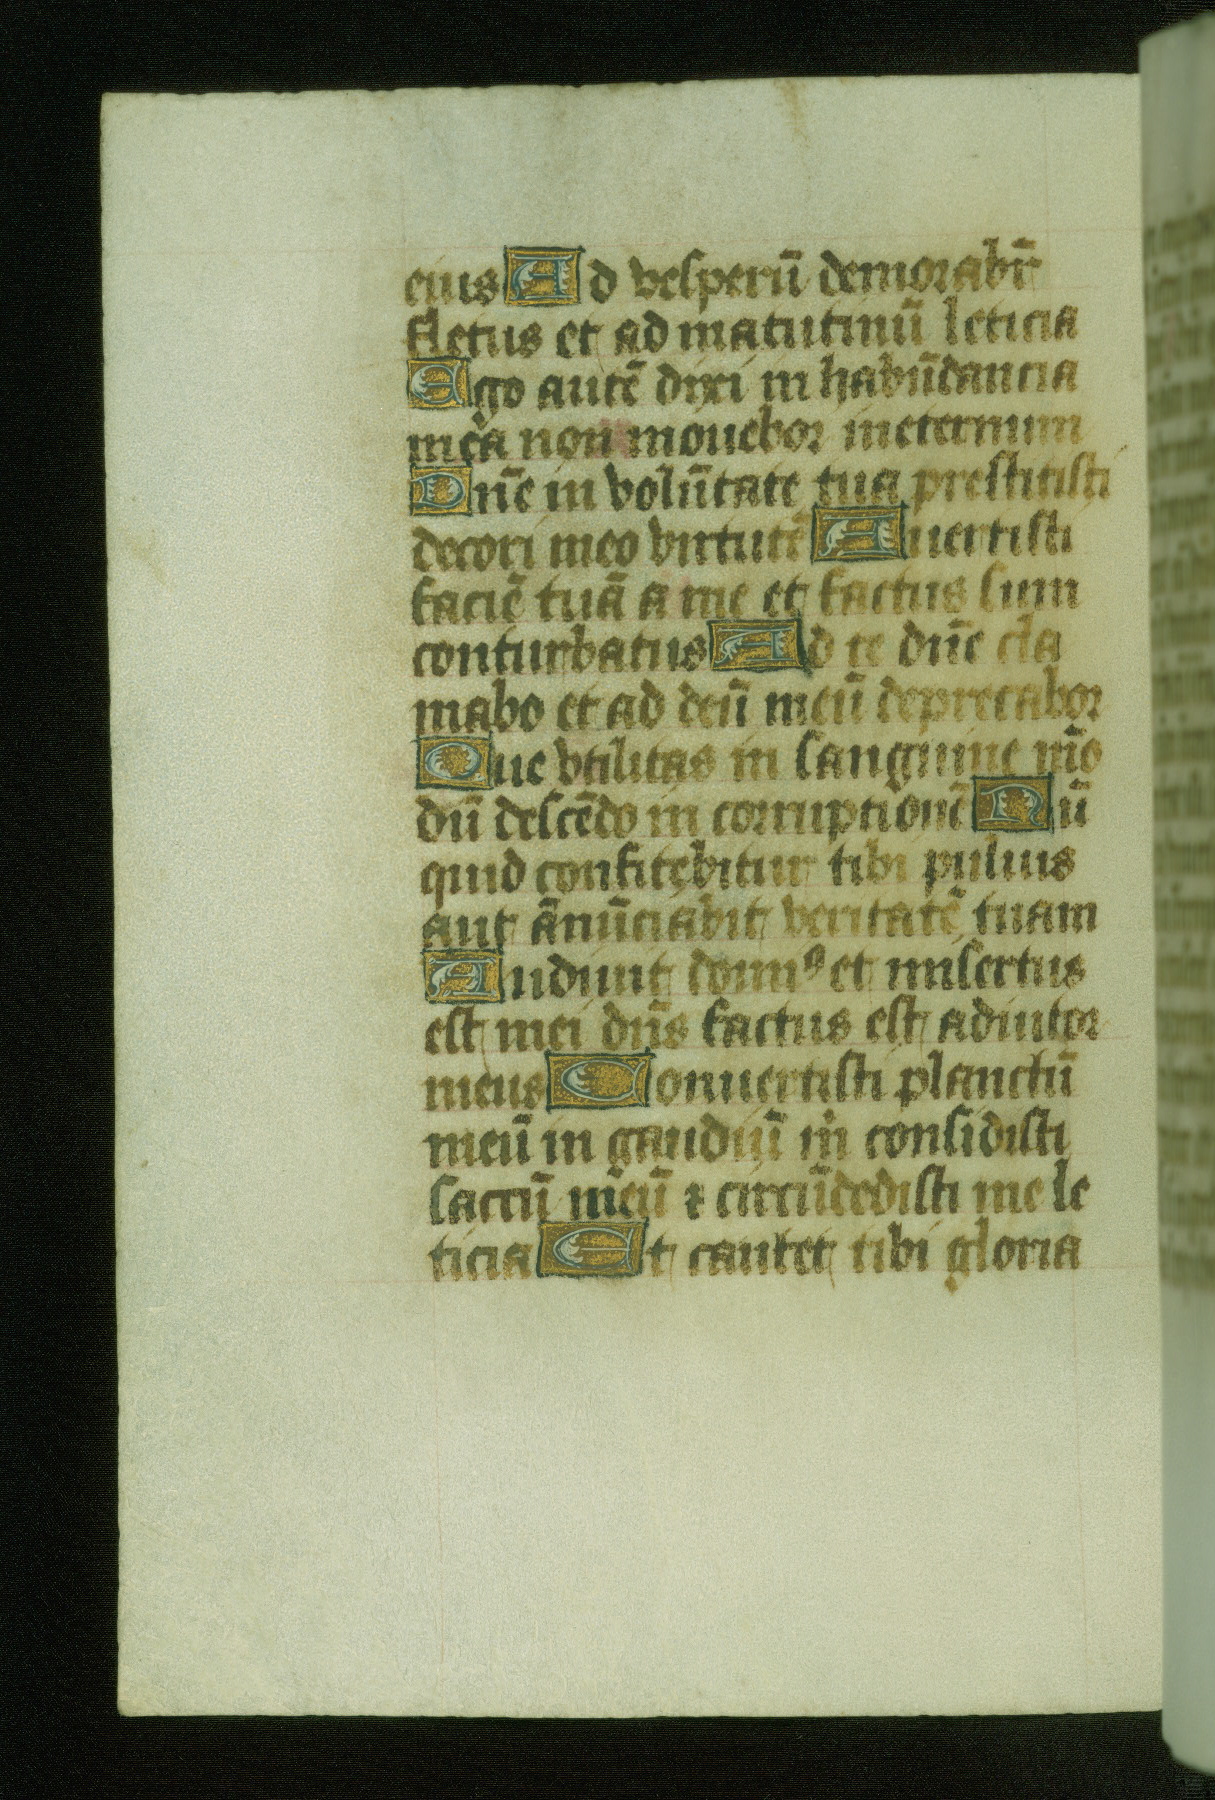 eius Ad vesperū demorabit̄
fletus et ad matutinū leticia
Ego autē dixi in habūdancia
mea non mouebor ineternum
Dn̄e in volūtate tua prestitisti
decori meo virtutē Auertisti
faciē tuā a me et factus sum
conturbatus Ad te dn̄e cla
mabo et ad deū meū deprecabor
Que vtilitas in sanguine m̄o
dū descēdo in corruptionē Nū
quid confitebitur tibi puluis
aut ānūciabit veritatē tuam
Audiuit domꝰ et misertus
est mei dn̄s factus est adiutor
meus Conuertisti planctū
meū in gaudiū m̄ considisti
saccū meū ⁊ circūdedisti me le
ticia Et cantet tibi gloria